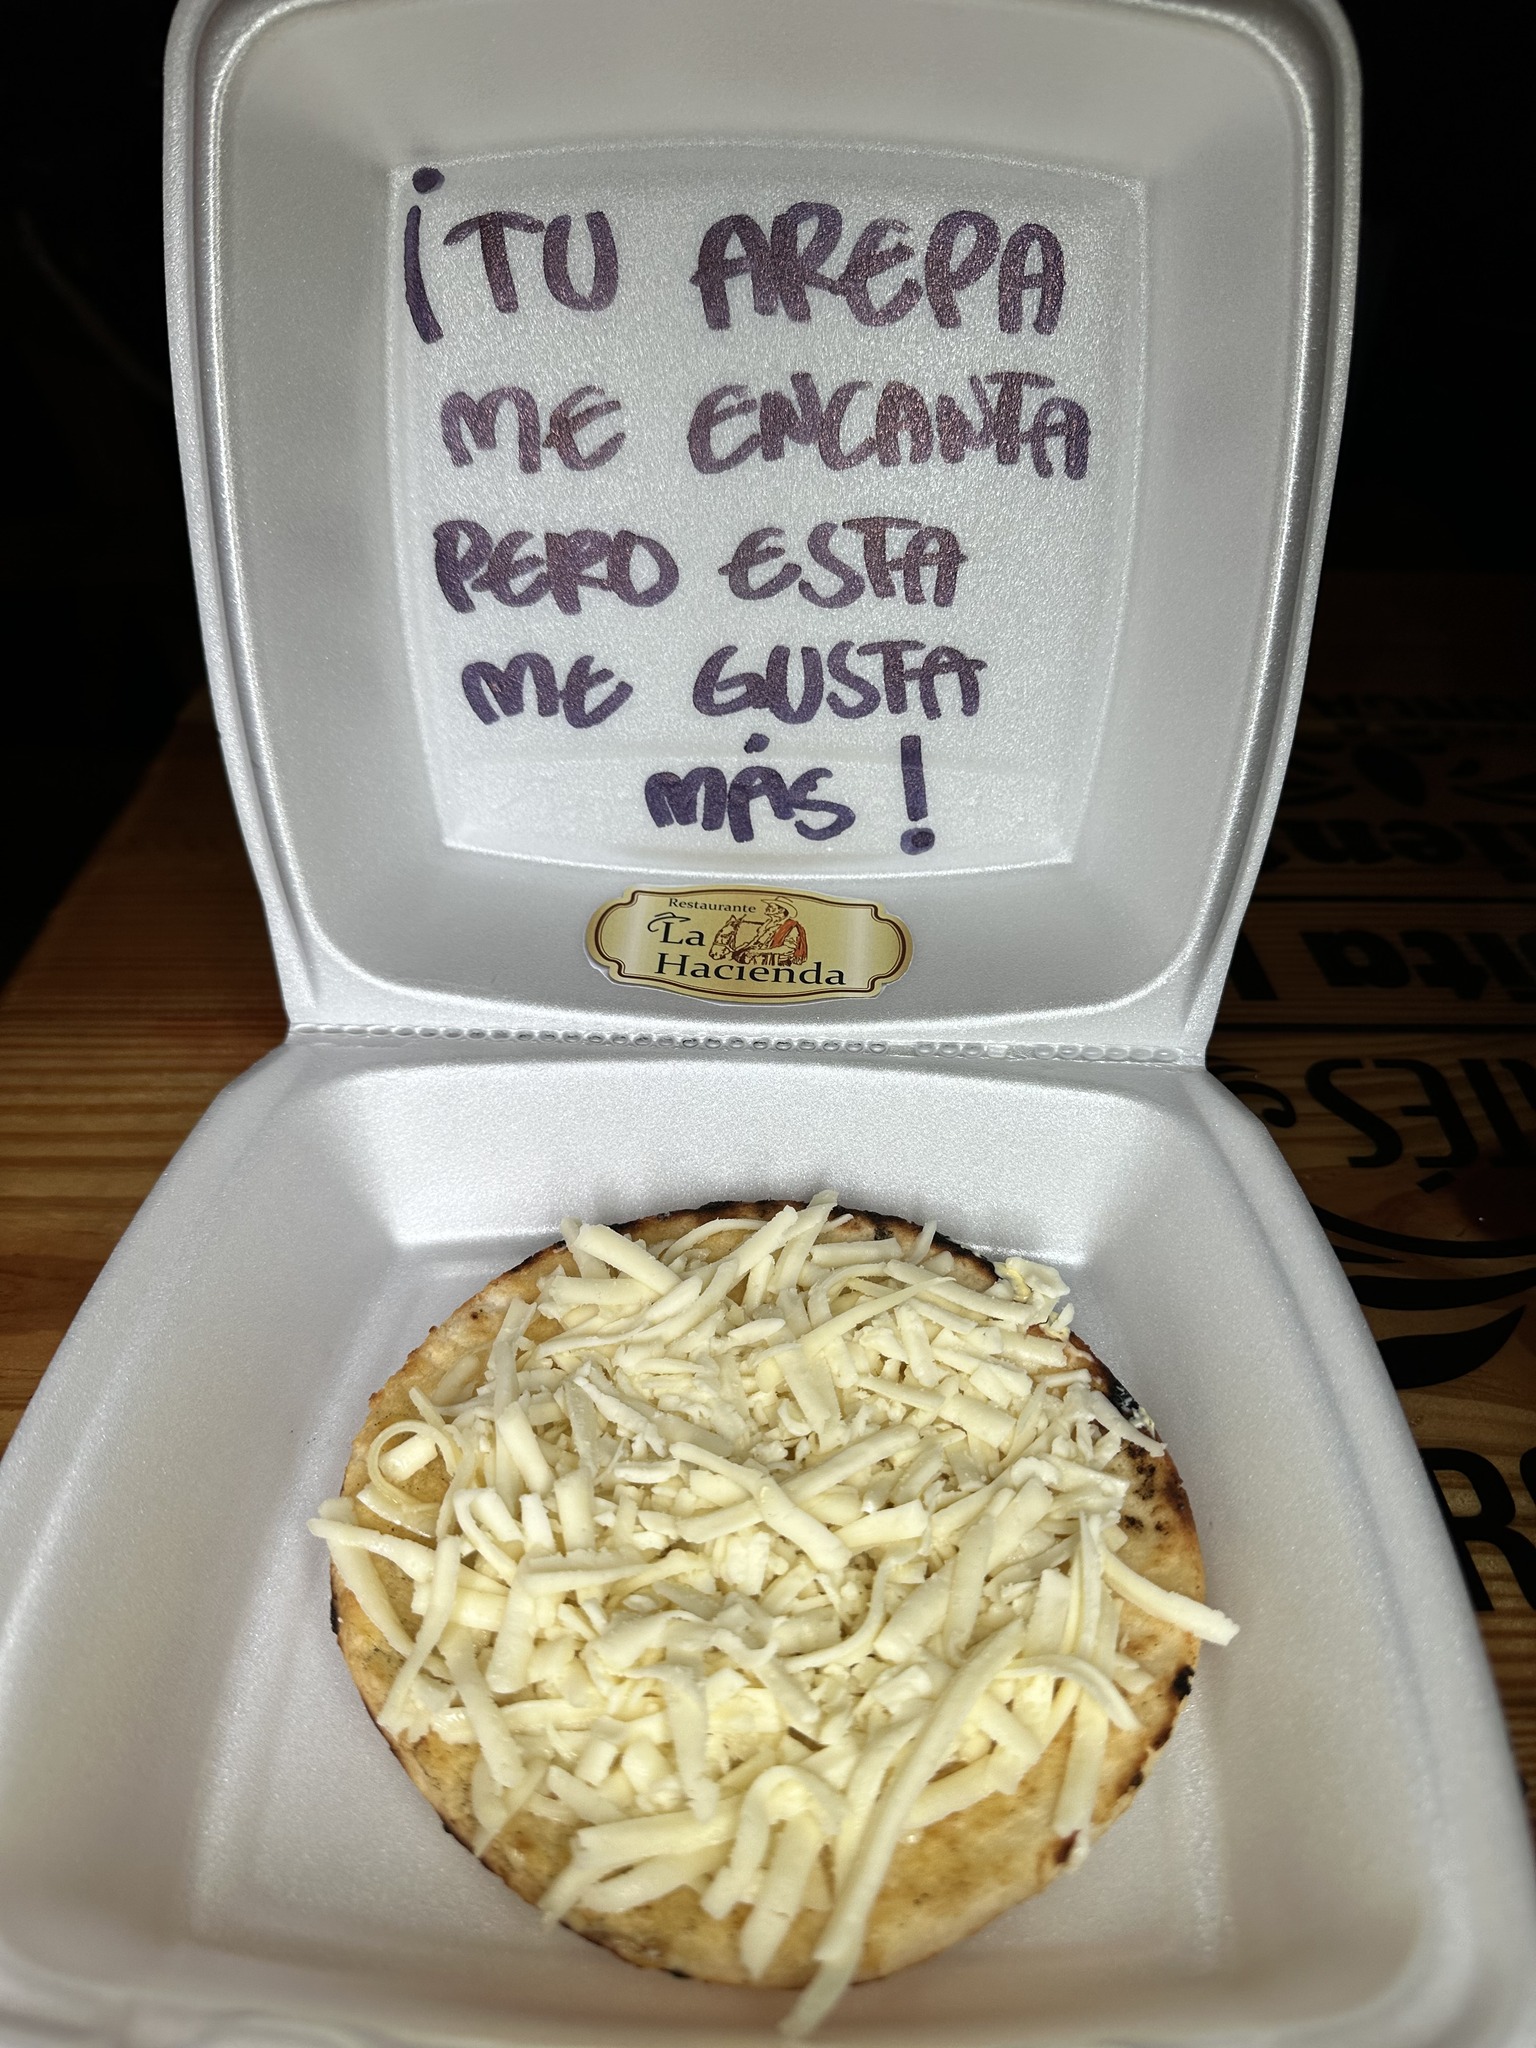 ¡TU AREPA
ME ENCANTA
PERO ESTA
ME GUSTA
MÁS!
Restaurante
La
Hacienda